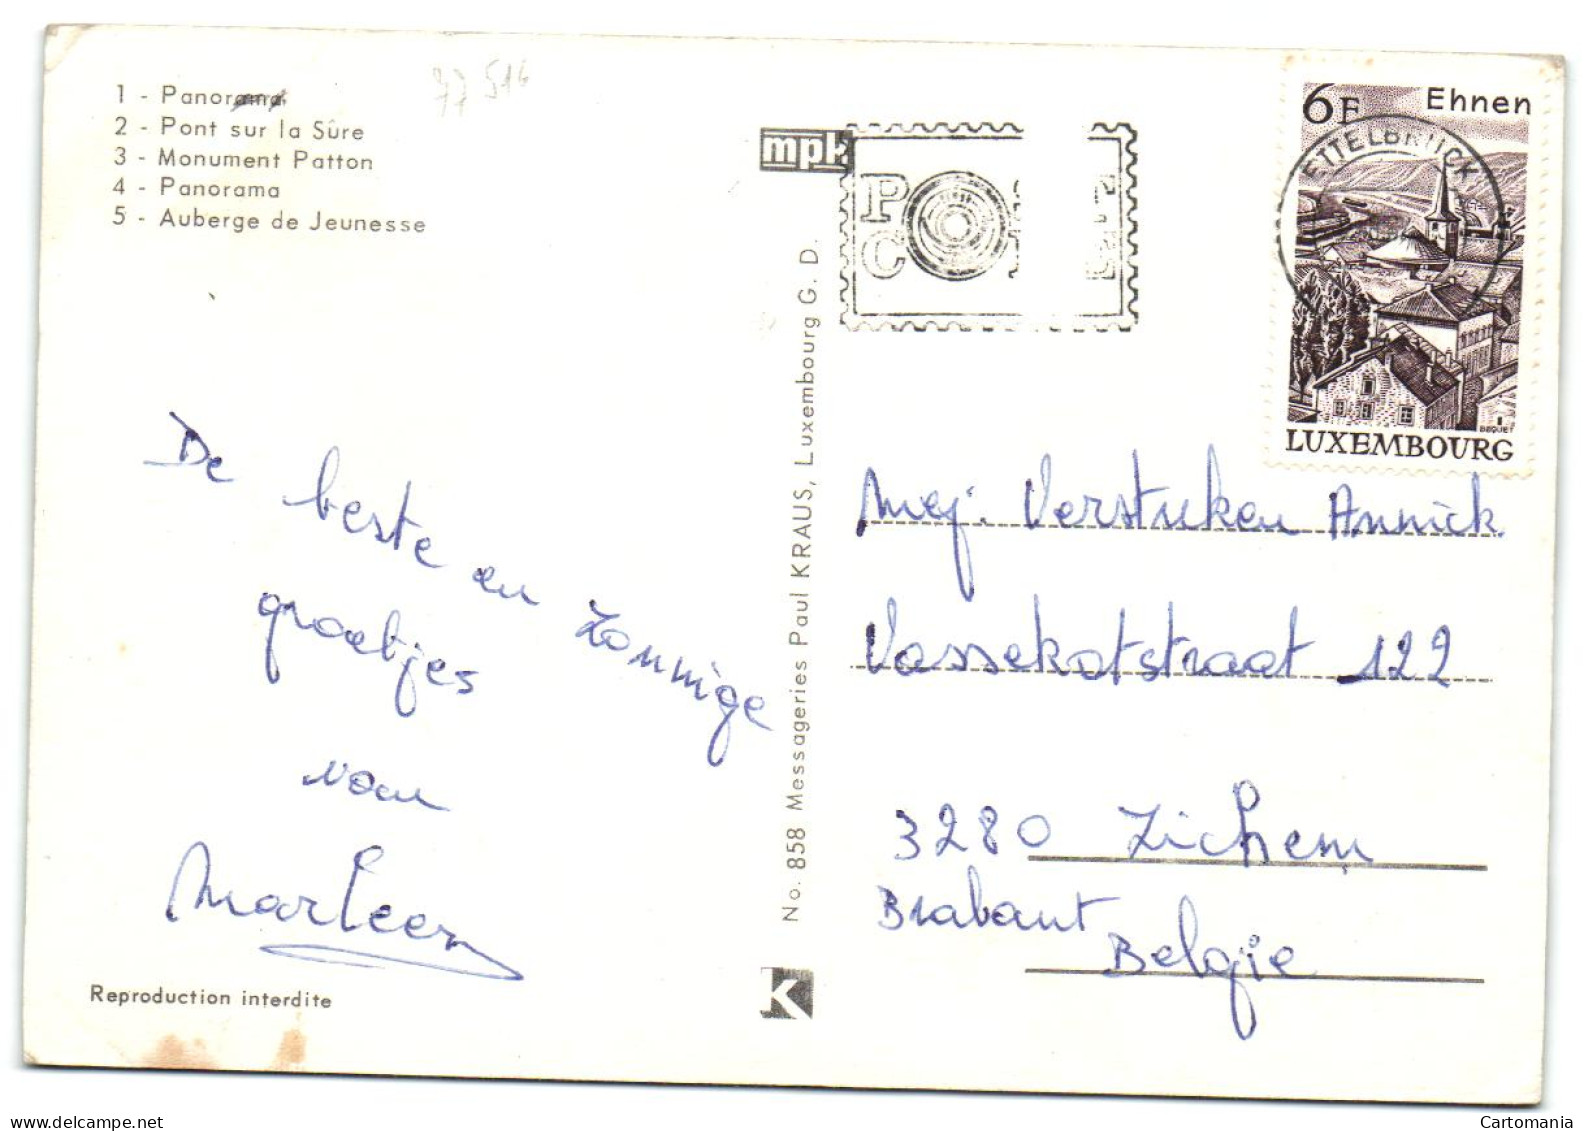 1 - Panorama
2 - Pont sur la Sûre
3 - Monument Patton
4 - Panorama
5 - Auberge de Jeunesse
77 516
mpk
P
C
6F Ehnen
ETTELBRUCK
BEQUET
LUXEMBOURG
De beste en zonnige
groetjes
van
Marleen
Reproduction interdite
No. 858 Messageries Paul KRAUS, Luxembourg G. D.
K
Mej. Verstuken Annick
Vossekotstraat 122
3280 Zichem
Brabant
Belgie
www.delcampe.net
Cartomania